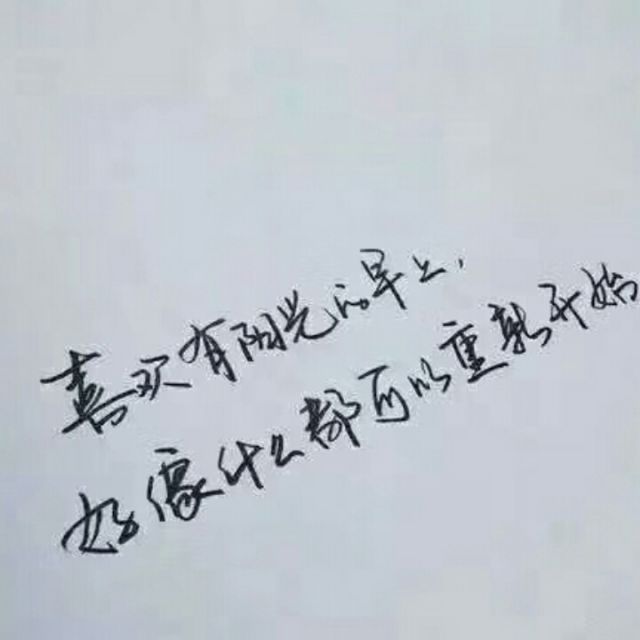 喜欢有阳光的早上,
好像什么都可以重新开始